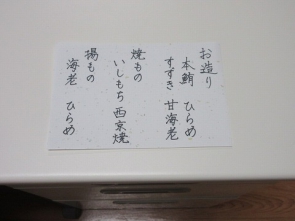 お造り
本鮪 ひらめ
すずき 甘海老
焼もの
いしもち 西京焼
揚もの
海老 ひらめ